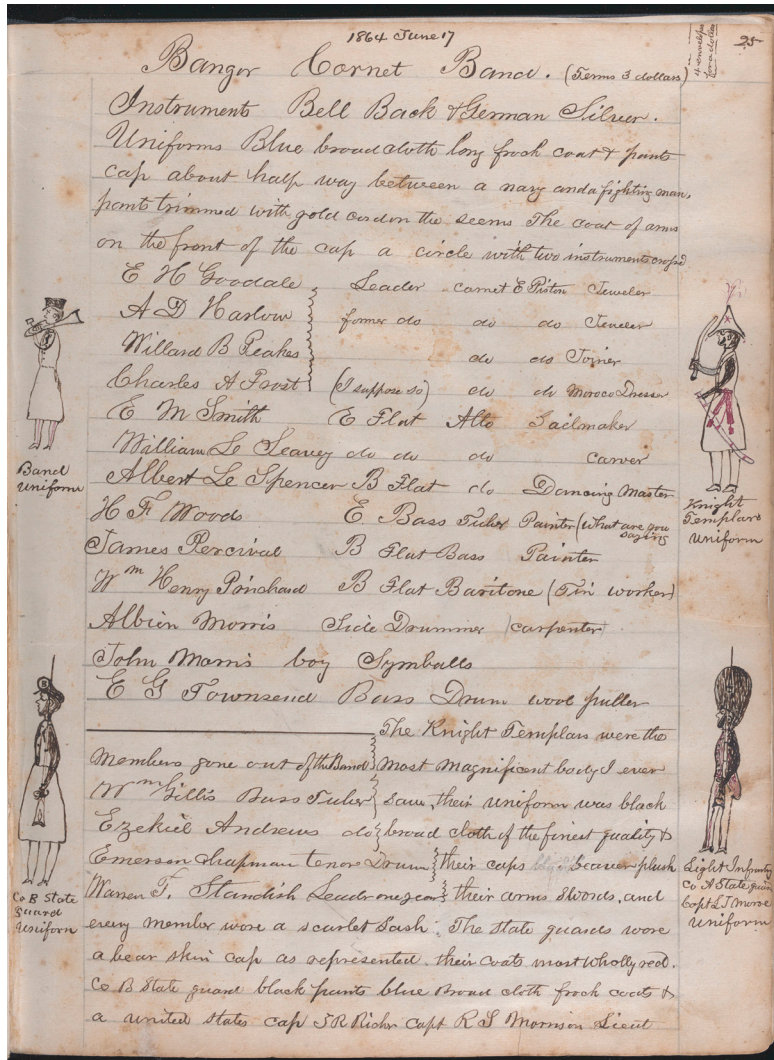 1864 June 17
25
4 envelops
for a dollar
Bangor Cornet Band. (Terms 3 dollars)
Instruments Bell Back & German Silver.
Uniforms Blue broad cloth long frock coat & pants
cap about half way between a navy and a fighting man,
pants trimmed with gold cord on the seems The coat of arms
on the front of the cap a circle with two instruments crossd
E H Goodale Leader cornet E Piston Jeweler
A D Harlow former do do do Jeweler
Willard B Peakes do do Joiner
Charles A Frost (I suppose so) do do Moroco Dresser
E M Smith E Flat Alto Sailmaker
William L Seavey do do do carver
Albert L Spencer B Flat do Dancing Master
H F Woods E. Bass Tuber Painter (what are you
saying
James Percival B Flat Bass Painter
Wm Henry Prichard B Flat Baritone (Tin worker)
Albion Morris Side Drummer (carpenter)
John Morris boy Symballs
E G Townsend Bass Drum wool puller
The Knight Templars were the
Members gone out of the Band most magnificent body I ever
Wm Gillis Bass Tuber saw, their uniform was black
Ezekiel Andrews do broad cloth of the finest quality &
Emerson Chapman tenore Drum their caps beaver plush
Warren T. Standish Leadr one year their arms swords, and
every member wore a scarlet Sash. The State guards wore
a bear skin cap as represented. their coats most wholly red.
Co B State guard black pants blue Broad cloth frock coats &
a united states cap J R Richer Capt R S Morrison Lieut
Band
Uniform
Knight
Templars
Uniform
Co B State
Guard
Uniform
Light Infantry
Co A State guard
Capt L J Morse
Uniform